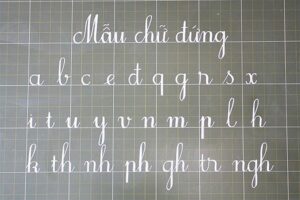 Mẫu chữ đứng
a b c e đ q g r s x
i t u y v n m p l h
k th nh ph gh tr ngh